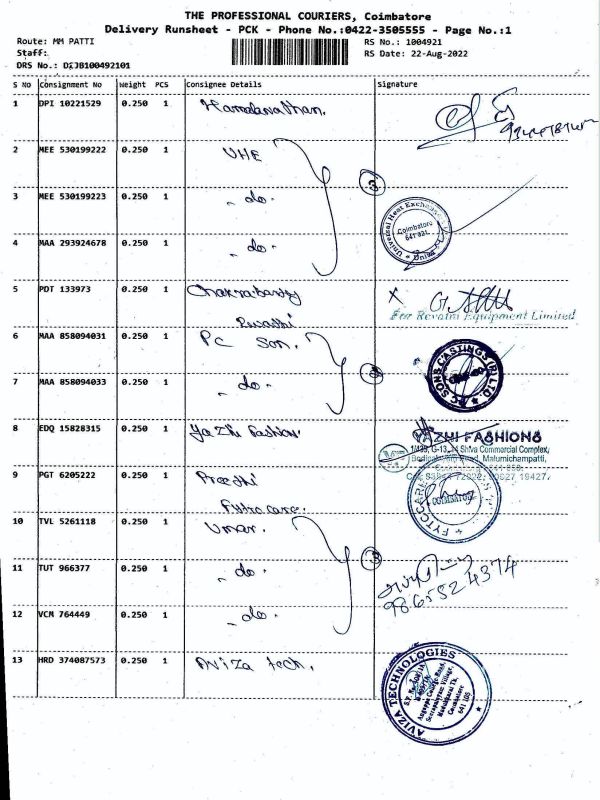 THE PROFESSIONAL COURIERS, Coimbatore
Delivery Runsheet - PCK - Phone No.:0422-3505555 - Page No.:1
Route: MM PATTI RS No.: 1004921
Staff: RS Date: 22-Aug-2022
DRS No.: DIJB100492101
S No Consignment No Weight PCS Consignee Details Signature
1 DPI 10221529 0.250 1
2 MEE 530199222 0.250 1 UHE
3 MEE 530199223 0.250 1 - do - 3
4 MAA 293924678 0.250 1 - do -
Universal Heat Exchange Coimbatore 641 021
5 PDT 133973 0.250 1
For Revathi Equipment Limited
6 MAA 858094031 0.250 1 PC Son.
7 MAA 858094033 0.250 1 - do - 2
C SONS CASTINGS (P) LTD
8 EDQ 15828315 0.250 1 Yazhi Fashion
YAZHI FASHIONS
1/439, G-13, 14 Shiva Commercial Complex,
Malumichampatti,
9 PGT 6205222 0.250 1 Preethi
Fytro care.
10 TVL 5261118 0.250 1 Umar.
11 TUT 966377 0.250 1 - do - 3
9865524374
12 VCM 764449 0.250 1 - do -
13 HRD 374087573 0.250 1 Aviza tech.
AVIZA TECHNOLOGIES
Coimbatore
641 105